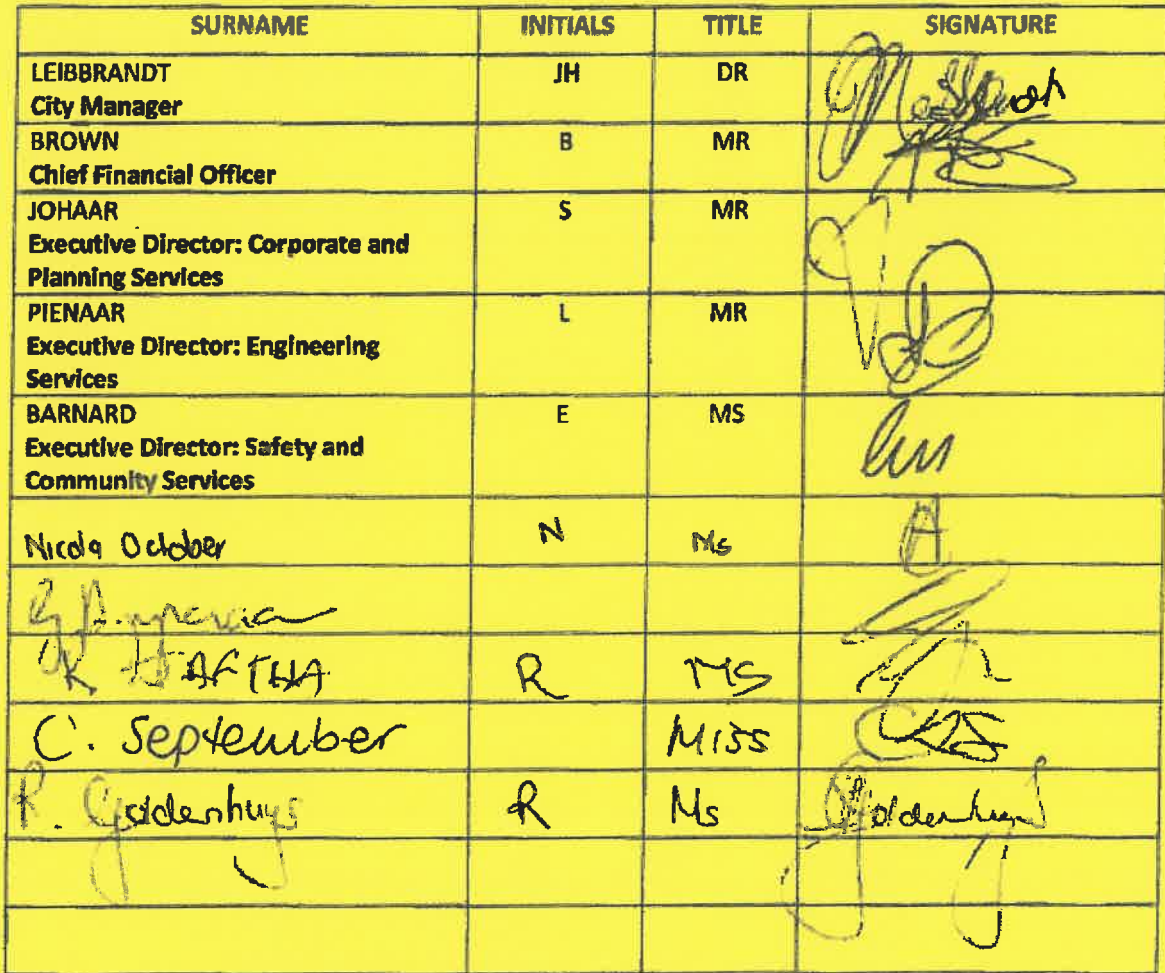 SURNAME INITIALS TITLE SIGNATURE
LEIBBRANDT JH DR
City Manager
BROWN B MR
Chief Financial Officer
JOHAAR S MR
Executive Director: Corporate and
Planning Services
PIENAAR L MR
Executive Director: Engineering
Services
BARNARD E MS
Executive Director: Safety and
Community Services
Nicola October N Ms
R MS
C. September Miss
R. Goldenhuys R Ms Goldenhuys